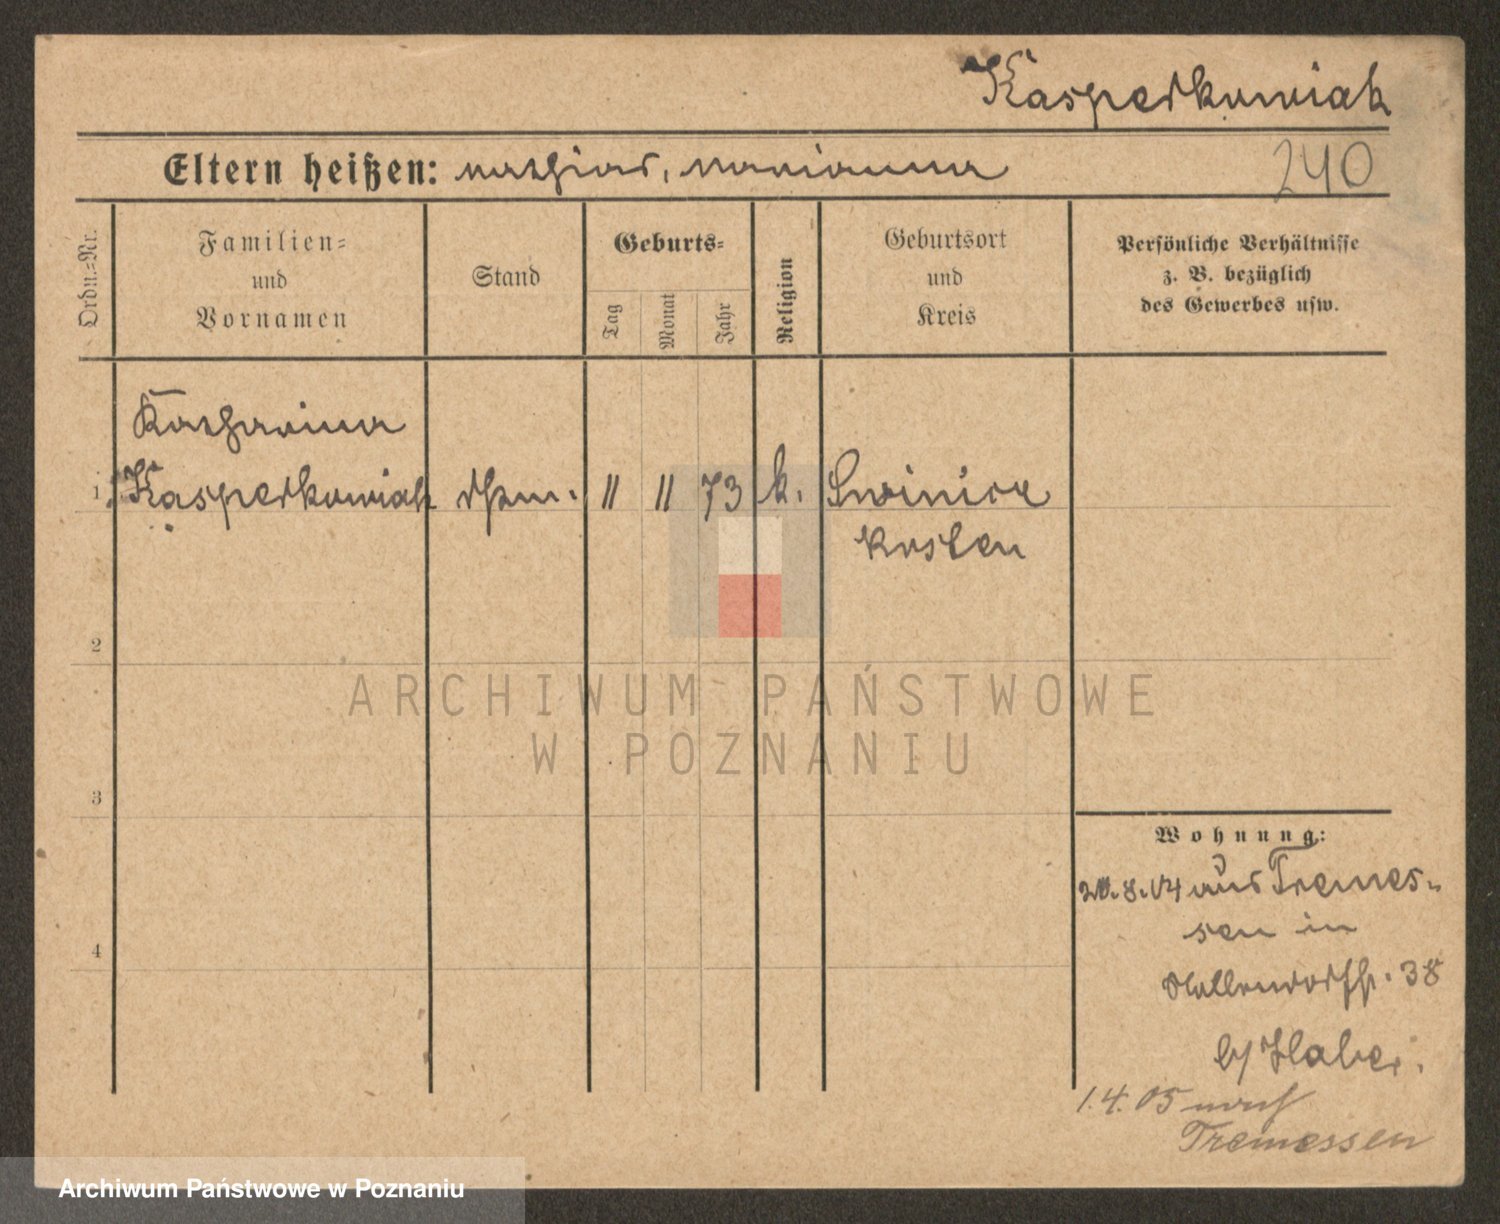 Kasperkowiak
Eltern heißen: Mathias, Marianna
240
Ordn.-Nr.
Familien-
und
Vornamen
Stand
Geburts-
Tag
Monat
Jahr
Religion
Geburtsort
und
Kreis
Persönliche Verhältnisse
z. B. bezüglich
des Gewerbes usw.
Katharina
1 Kasperkowiak 11 11 73 k.
Kosten
2
ARCHIWUM PAŃSTWOWE
W POZNANIU
3
4
Wohnung:
20.8.04 aus Tremes-
sen in
38
b/
1.4.05 nach
Tremessen
Archiwum Państwowe w Poznaniu